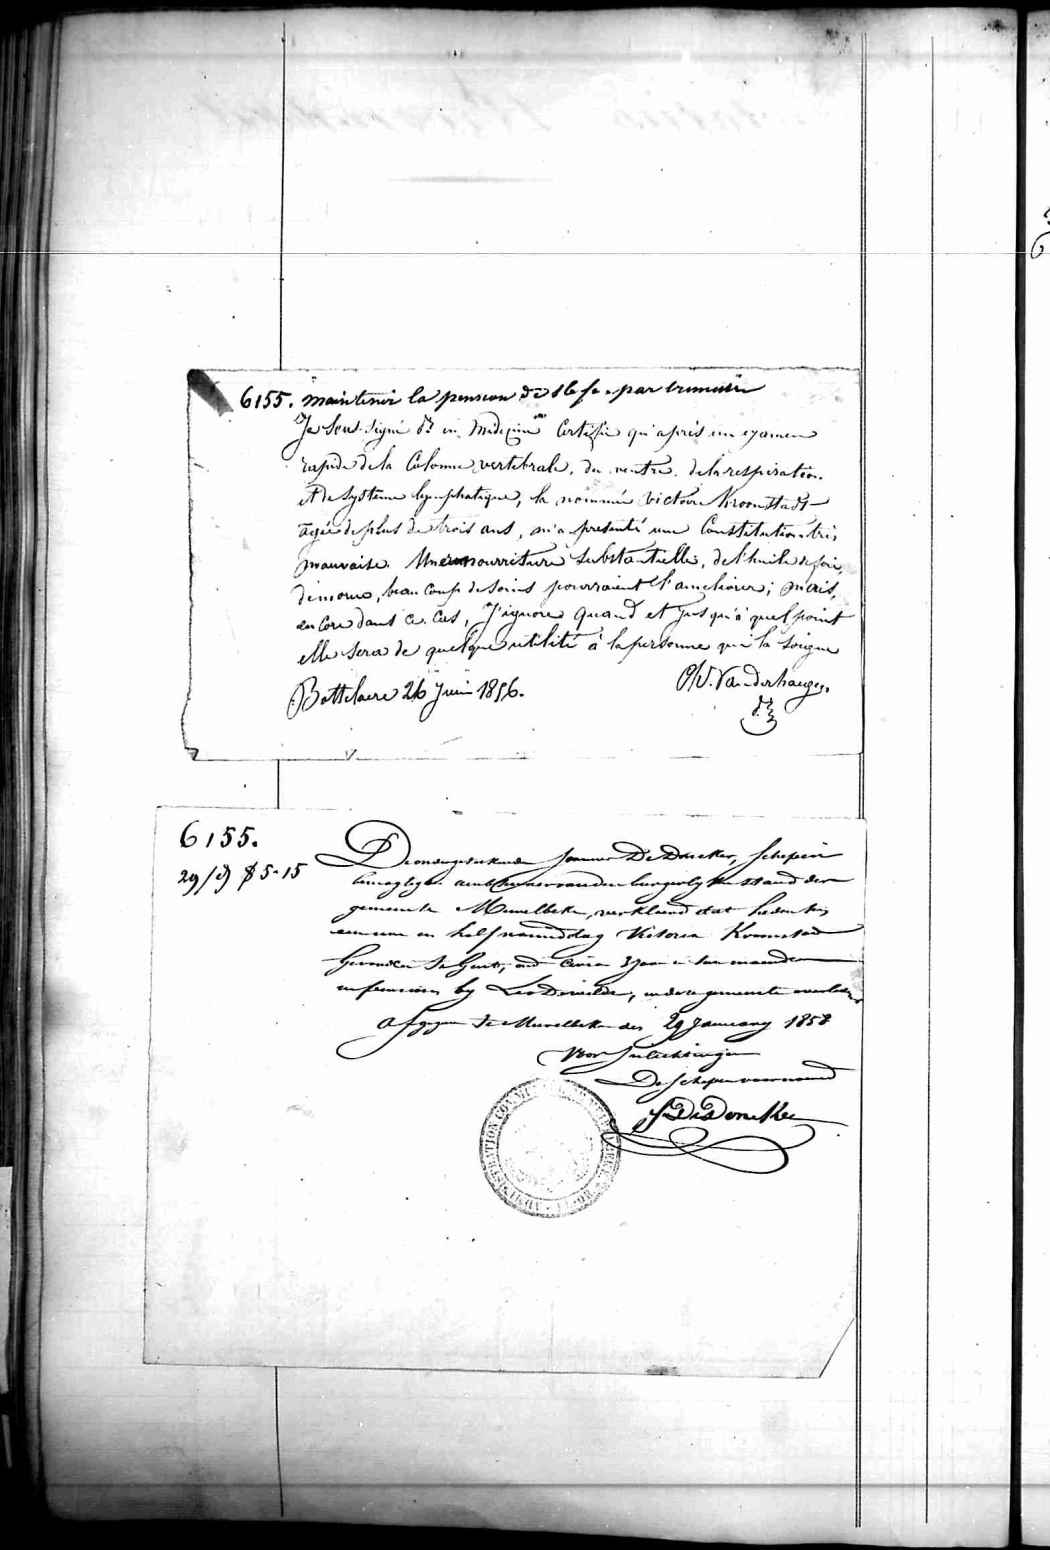 6155. maintenir la pension de 16 fr. par trimestre
Je sous signé dr en médecine certifie qu'après un examen
rapide de la Colonne vertebrale, du ventre, de la respiration
et de système lymphatique, la nommée Victoire Kroonstadt
agée de plus de trois ans, m'a presenté une Constitution très
mauvaise. Une nourriture substantielle, de l'huile de foie
de morue, beaucoup de soins pourraient l'améliorer; mais,
encore dans ce cas, J'ignore quand et jusqu'à quel point
elle sera de quelque utilité à la personne qui la soigne
Bottelaere 26 Juin 1856.
Vanderhaegen
dr
6155.
29/ 85-15
De ondergeteekende De Doncker, Schepen
ambtenaer van den burgerlyken stand der
gemeente Munelbeke, verklaerd dat heden ten
een uer en half namiddag Victoria Kroonstad
te Gent, oud circa 3 jaer en maenden
in pensioen by Leo, in deze gemeente overleden
Afgegeven te Munelbeke den 29 January 1858
Voor Inlichtingen
De Schepen voornoemd
De Doncker
ADMINISTRATION COMMUNALE